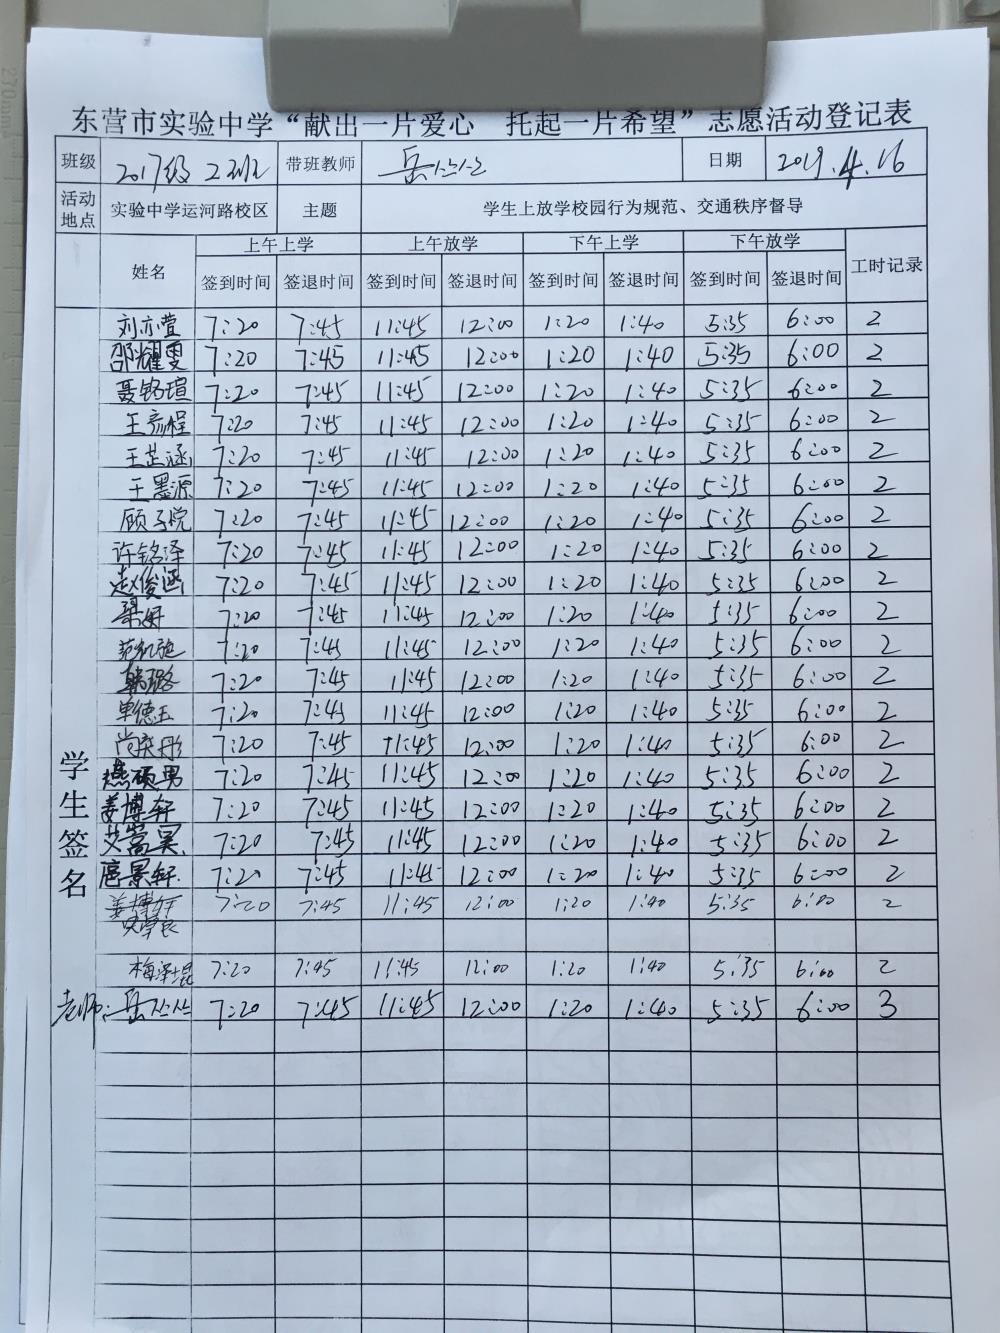 东营市实验中学“献出一片爱心 托起一片希望”志愿活动登记表
班级 2017级 2班 带班教师 岳丛丛 日期 2019.4.16
活动地点 实验中学运河路校区 主题 学生上放学校园行为规范、交通秩序督导
上午上学 上午放学 下午上学 下午放学
姓名 签到时间 签退时间 签到时间 签退时间 签到时间 签退时间 签到时间 签退时间 工时记录
学生签名
刘亦萱 7:20 7:45 11:45 12:00 1:20 1:40 5:35 6:00 2
邵耀雯 7:20 7:45 11:45 12:00 1:20 1:40 5:35 6:00 2
聂铭瑄 7:20 7:45 11:45 12:00 1:20 1:40 5:35 6:00 2
王彦程 7:20 7:45 11:45 12:00 1:20 1:40 5:35 6:00 2
王芷涵 7:20 7:45 11:45 12:00 1:20 1:40 5:35 6:00 2
王墨源 7:20 7:45 11:45 12:00 1:20 1:40 5:35 6:00 2
顾子悦 7:20 7:45 11:45 12:00 1:20 1:40 5:35 6:00 2
许铭泽 7:20 7:45 11:45 12:00 1:20 1:40 5:35 6:00 2
赵俊涵 7:20 7:45 11:45 12:00 1:20 1:40 5:35 6:00 2
7:20 7:45 11:45 12:00 1:20 1:40 5:35 6:00 2
7:20 7:45 11:45 12:00 1:20 1:40 5:35 6:00 2
韩璐 7:20 7:45 11:45 12:00 1:20 1:40 5:35 6:00 2
单德玉 7:20 7:45 11:45 12:00 1:20 1:40 5:35 6:00 2
尚奕彤 7:20 7:45 11:45 12:00 1:20 1:40 5:35 6:00 2
燕硕男 7:20 7:45 11:45 12:00 1:20 1:40 5:35 6:00 2
姜博轩 7:20 7:45 11:45 12:00 1:20 1:40 5:35 6:00 2
艾嵩昊 7:20 7:45 11:45 12:00 1:20 1:40 5:35 6:00 2
扈景轩 7:20 7:45 11:45 12:00 1:20 1:40 5:35 6:00 2
姜博轩 7:20 7:45 11:45 12:00 1:20 1:40 5:35 6:00 2
梅泽堒 7:20 7:45 11:45 12:00 1:20 1:40 5:35 6:00 2
老师：岳丛丛 7:20 7:45 11:45 12:00 1:20 1:40 5:35 6:00 3